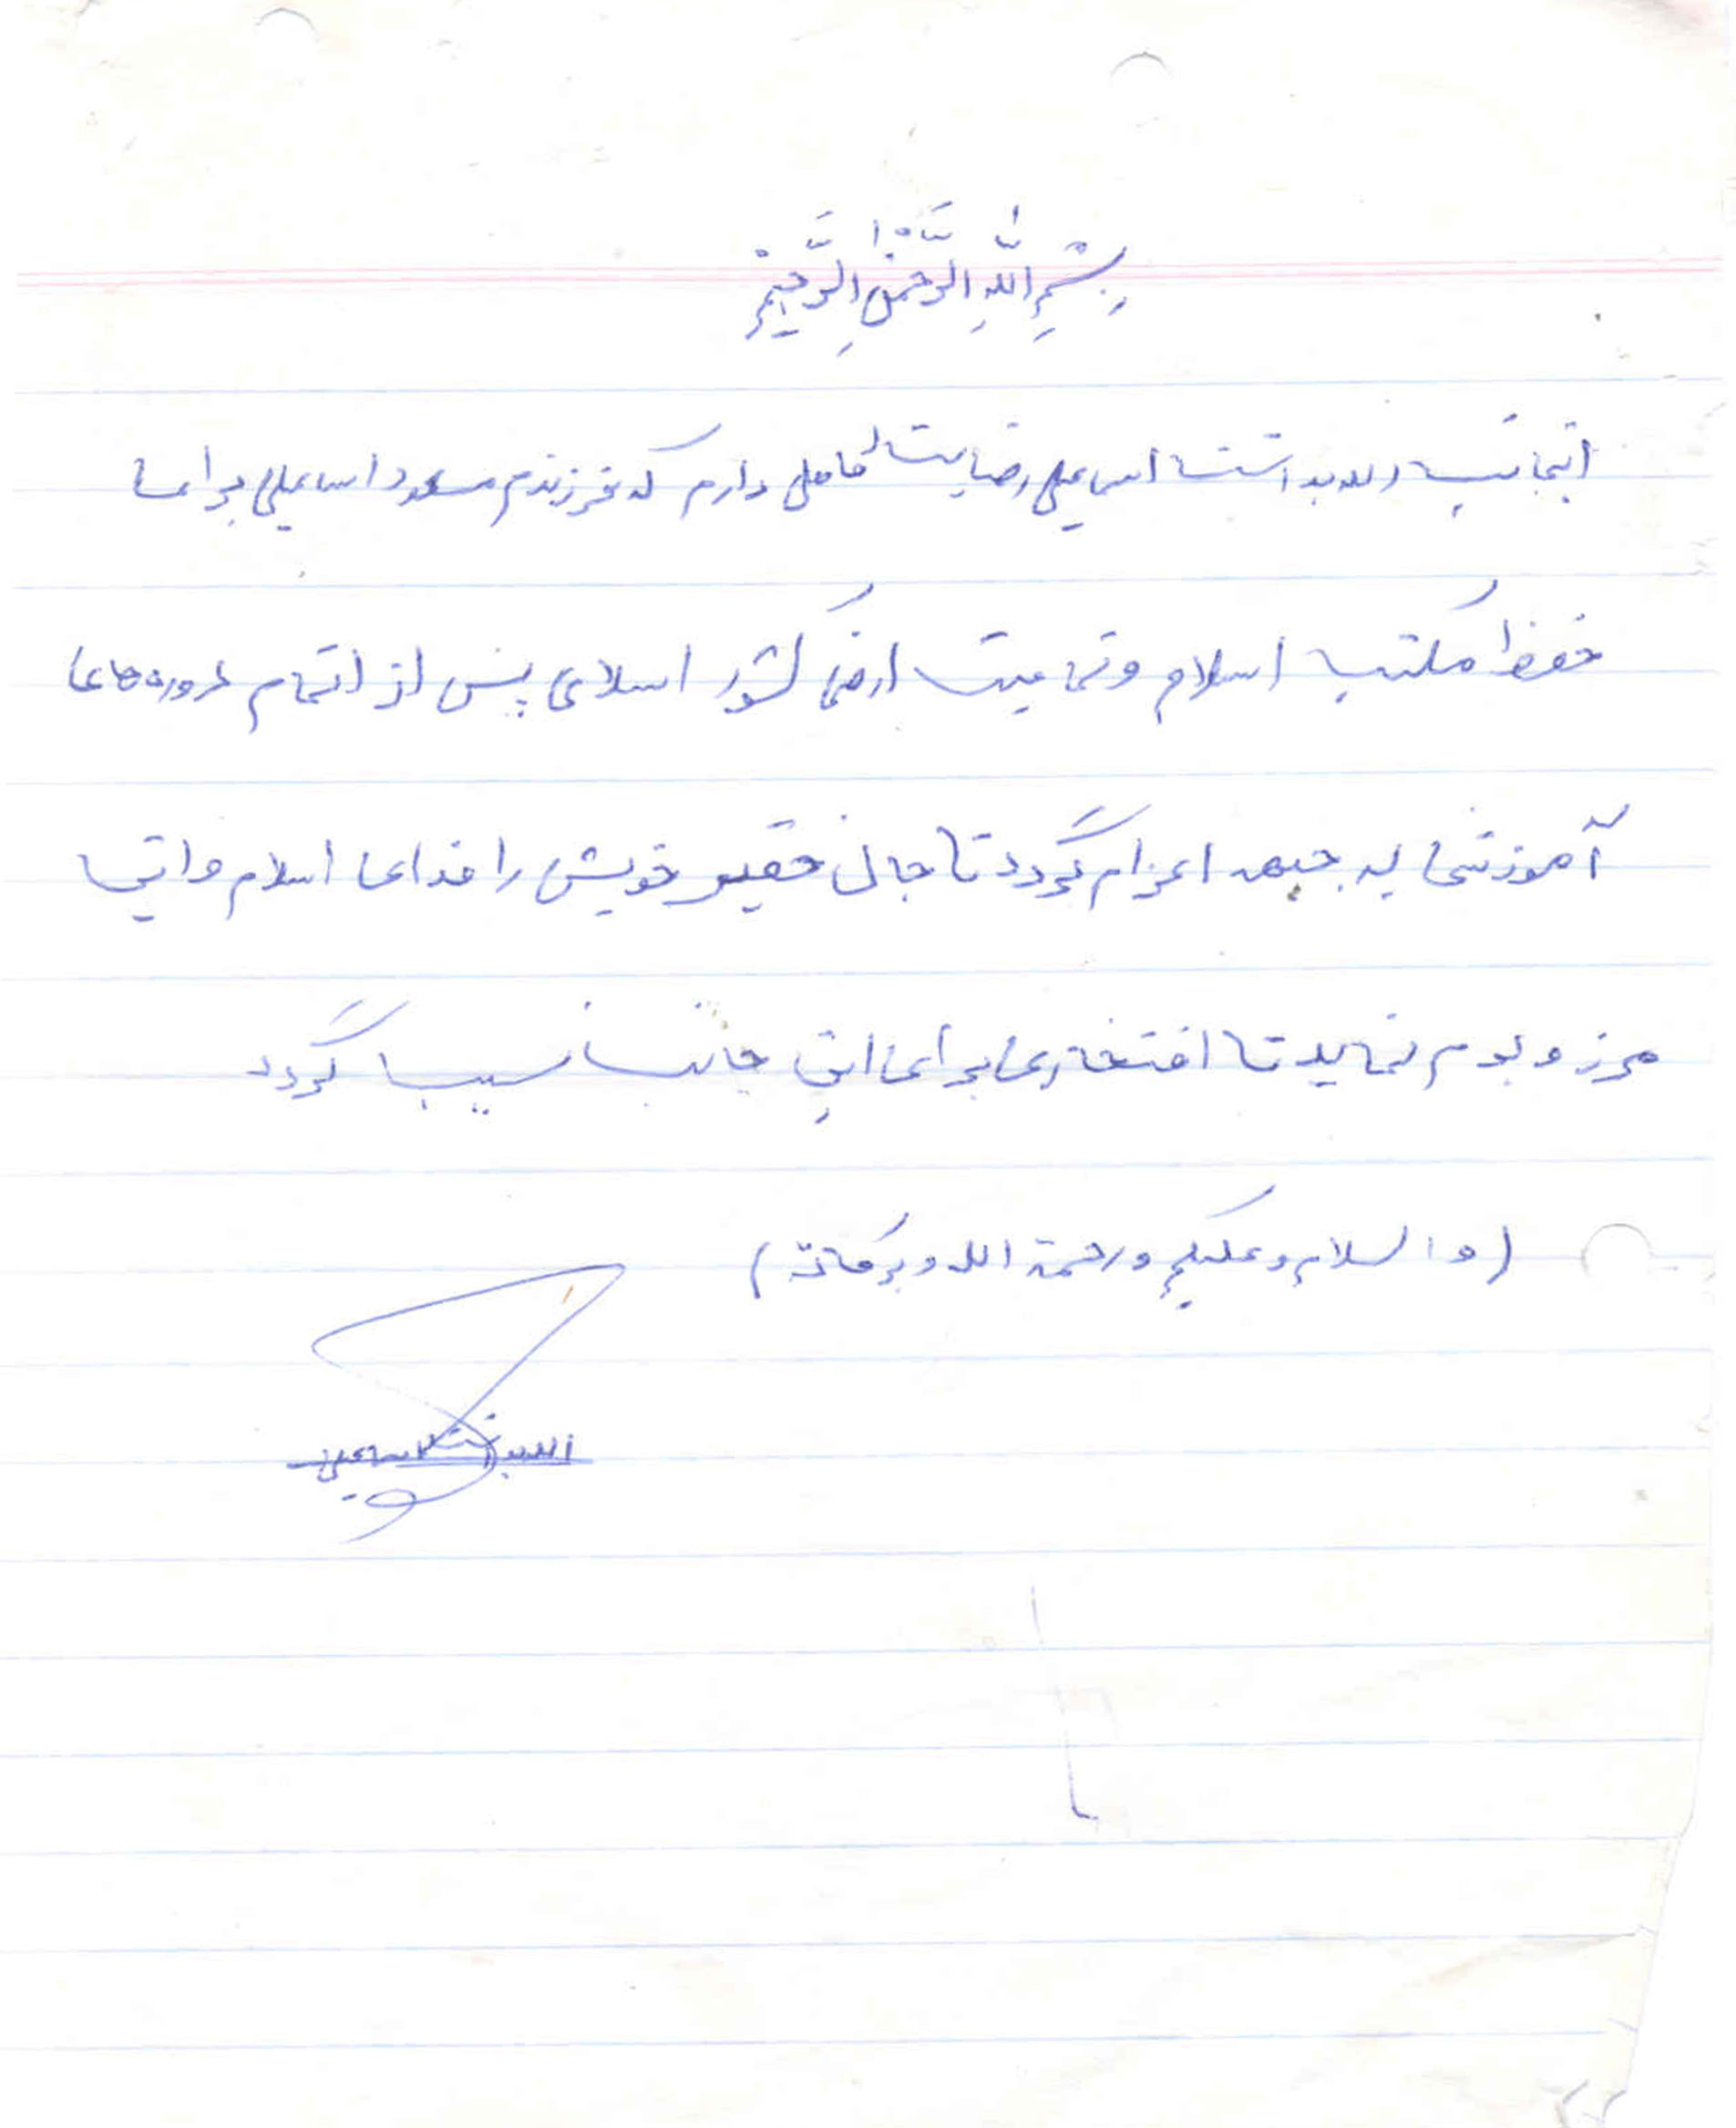 بِسْمِ اللَّهِ الرَّحْمَنِ الرَّحِيمْ
اینجانب اسماعیلی رضایت کامل دارم که فرزندم مسعود اسماعیلی برای
حفظ مکتب اسلام و تمامیت ارضی کشور اسلامی پس از اتمام دوره‌های
آموزشی به جبهه اعزام گردد تا جان حقیر خویش را فدای اسلام و این
مرز و بوم نماید تا افتخاری برای این جانب نسیب گردد
(والسلام و علیکم و رحمة الله و برکاته)
اسماعیلی